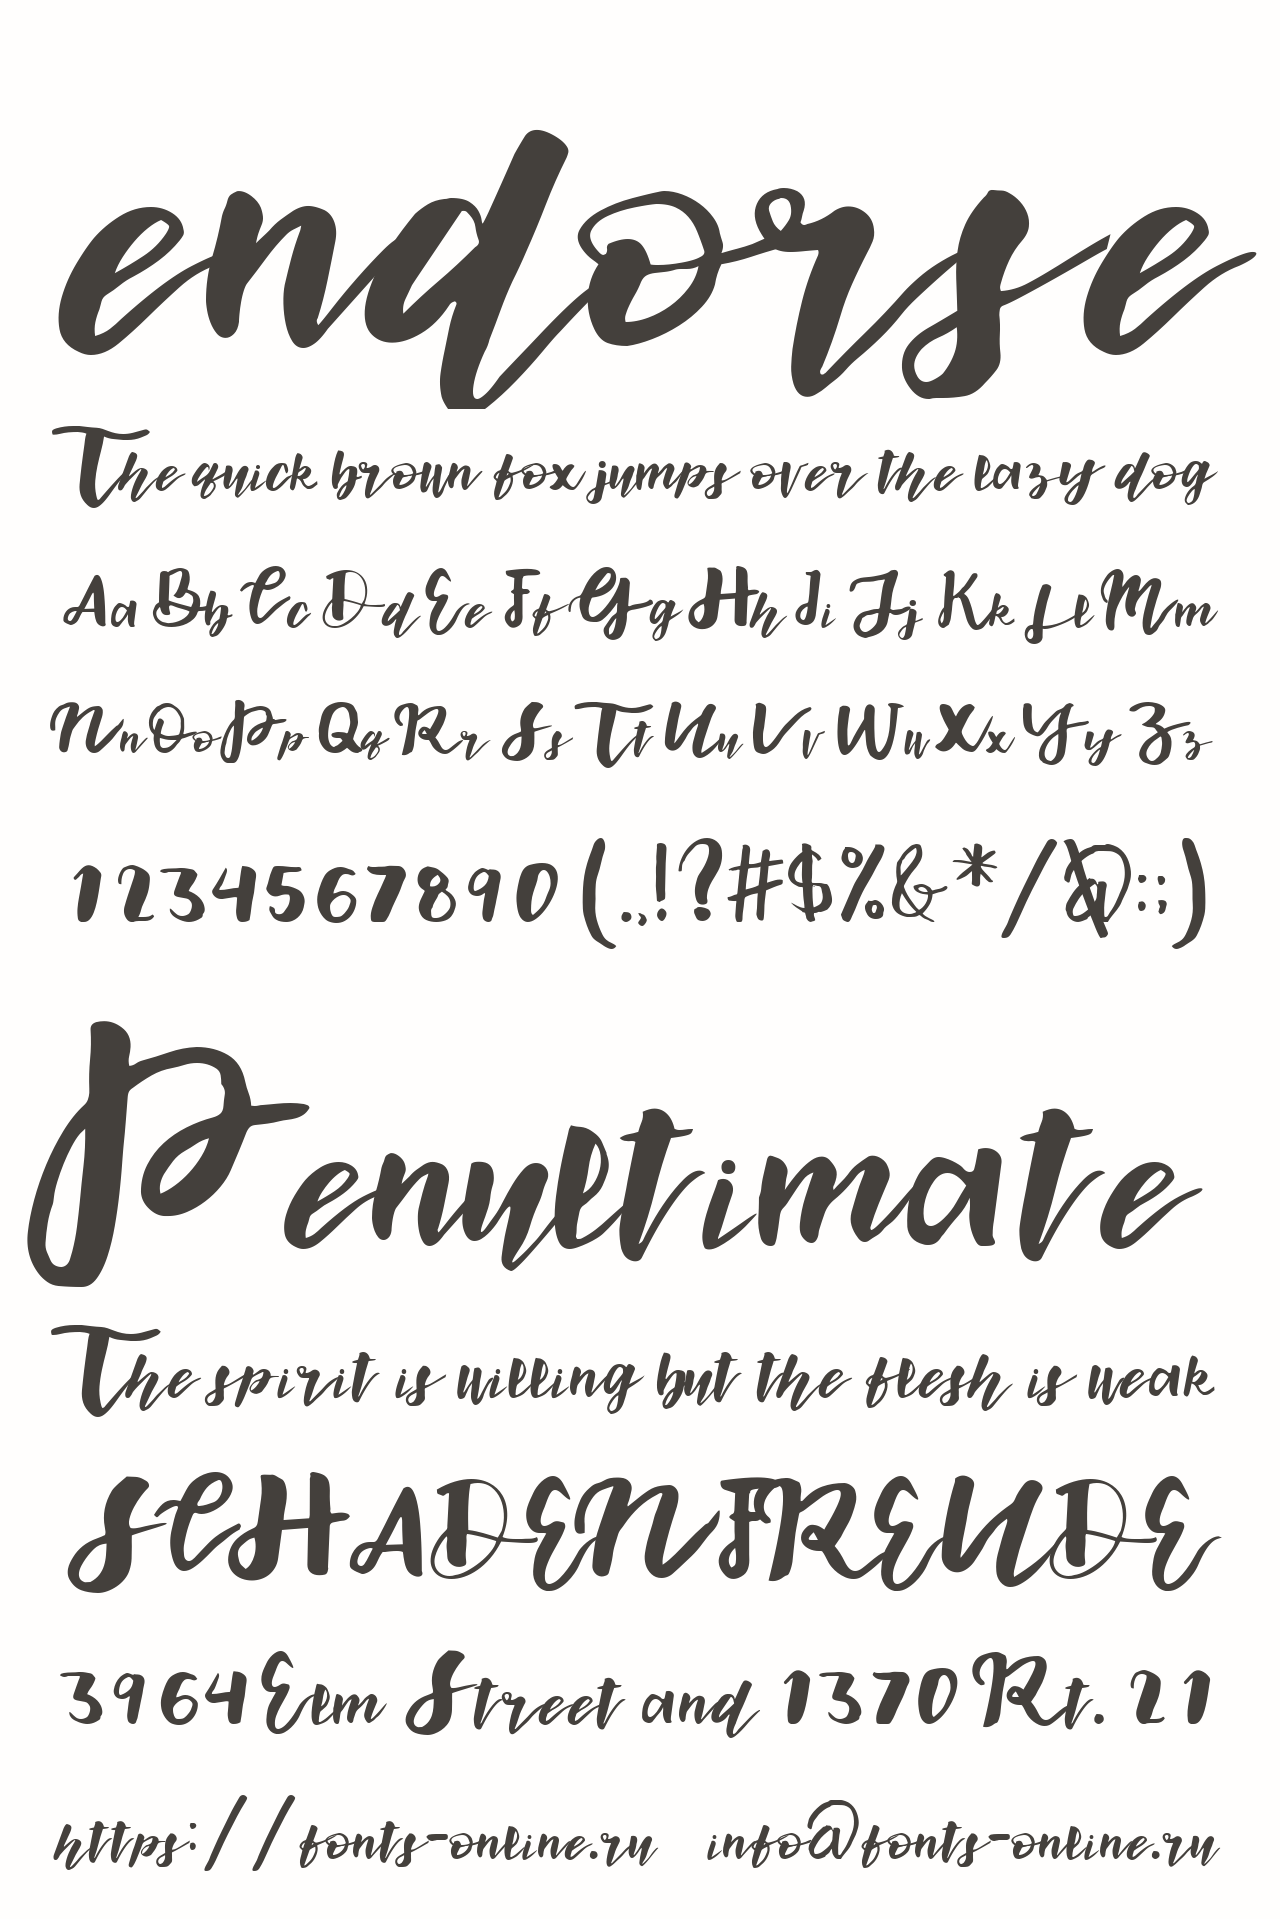 endorse
The quick brown fox jumps over the lazy dog
Aa Bb Cc Dd Ee Ff Gg Hh Ii Jj Kk Ll Mm
Nn Oo Pp Qq Rr Ss Tt Uu Vv Ww Xx Yy Zz
1234567890 (.,!?#$%&*/\@:;)
Penultimate
The spirit is willing but the flesh is weak
SCHADENFREUDE
3964 Elm Street and 1370 Rt. 21
https://fonts-online.ru info@fonts-online.ru